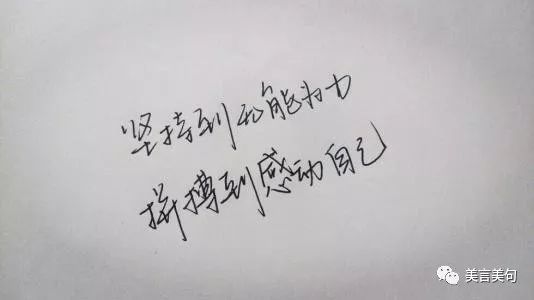 坚持到无能为力
拼搏到感动自己
美言美句